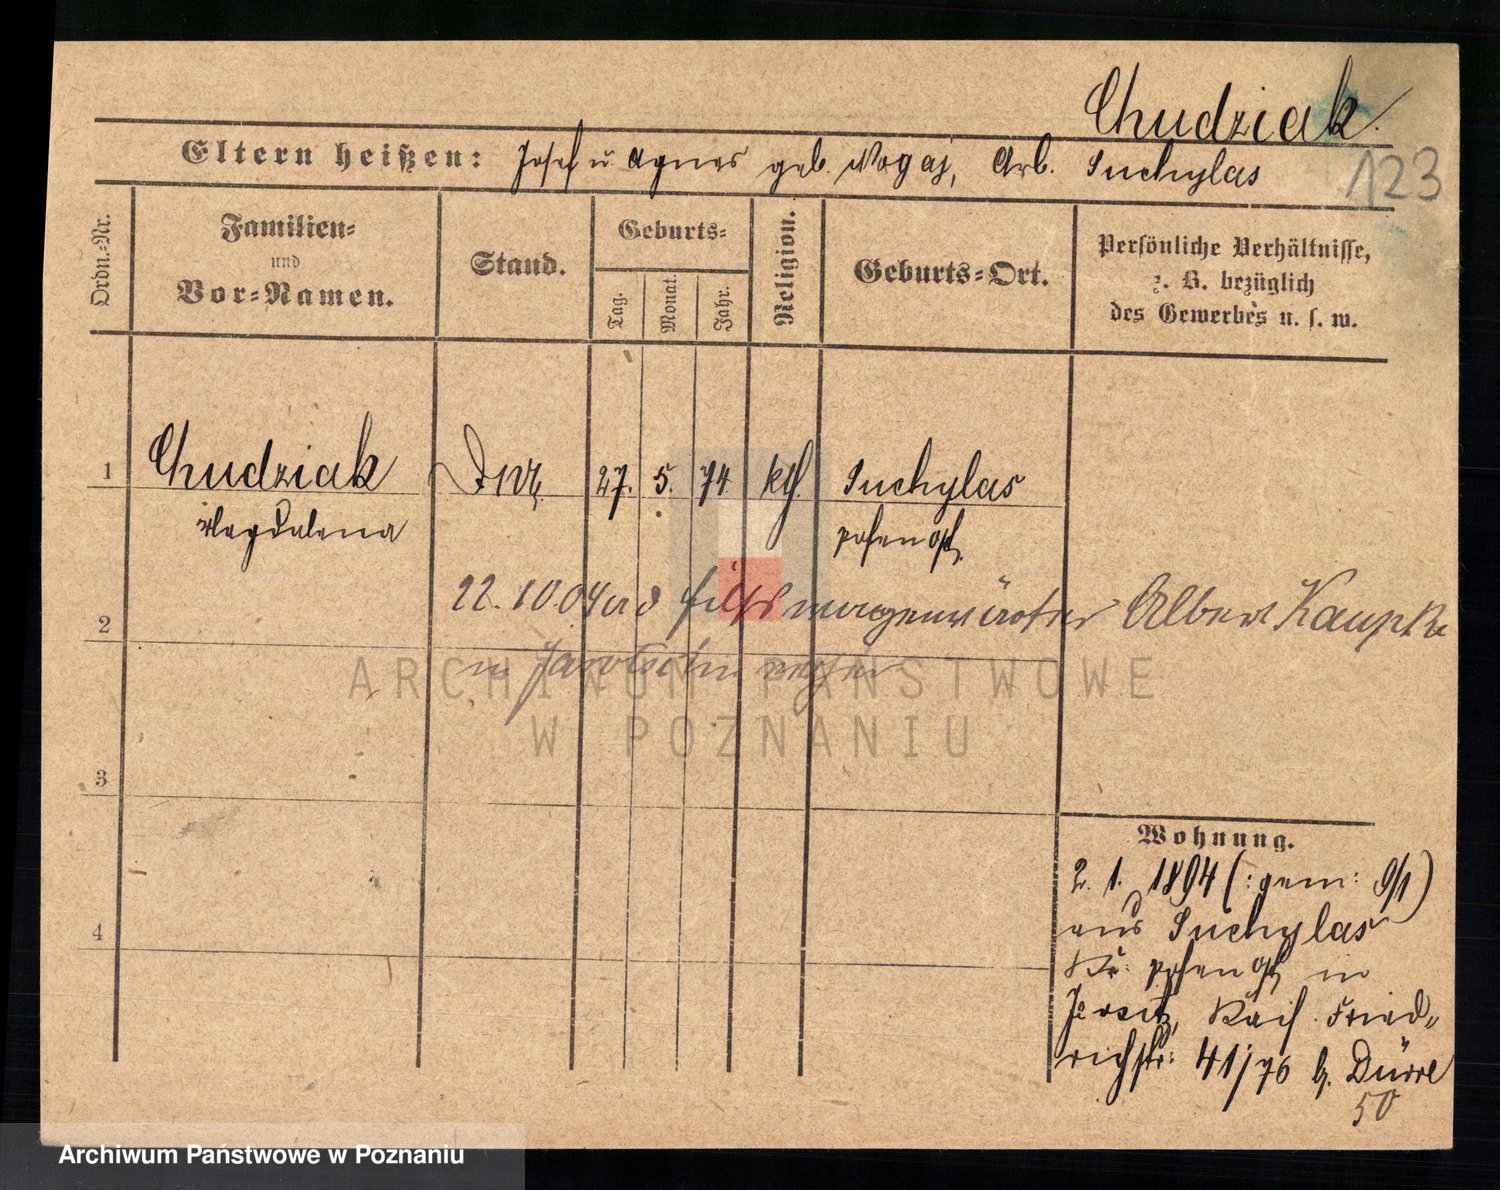 Chudziak.
Eltern heißen: Josef u. Agnes geb. Nogaj, Arb. Suchylas
123
Ordn.=Nr.
Familien=
und
Vor=Namen.
Stand.
Geburts=
Tag.
Monat.
Jahr.
Religion.
Geburts=Ort.
Persönliche Verhältnisse,
z. B. bezüglich
des Gewerbes u. s. w.
1 Chudziak 27. 5. 74 kth. Suchylas
Magdalena Posen Ost,
2 22.10.04 wd Hilfs Albert Kaupke
in Jarotschin
3
4
Wohnung.
2. 1. 1894 (:gem: 9/1)
aus Suchylas
Kr: Posen Ost, in
Jersitz, Kais. Fried=
richstr: 41/76 b. Dürre
50
ARCHIWUM PAŃSTWOWE
W POZNANIU
Archiwum Państwowe w Poznaniu